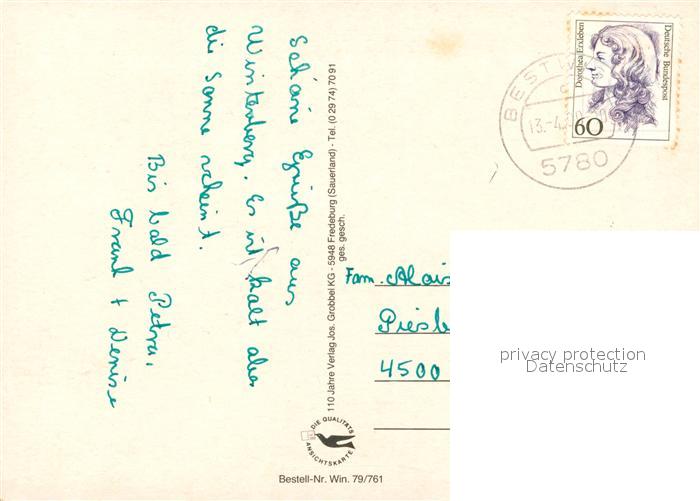 Schöne Grüße aus
Winterberg. Es ist kalt aber
die Sonne scheint.
Bis bald Petra,
Frank + Denise
110 Jahre Verlag Jos. Grobbel KG - 5948 Fredeburg (Sauerland) - Tel. (0 29 74) 70 91
ges. gesch.
DIE QUALITÄTS
ANSICHTSKARTE
Bestell-Nr. Win. 79/761
Dorothea Erxleben
Deutsche Bundespost
60
BESTWI
13.-4.
5780
Fam. Alois
Piesb
4500
privacy protection
Datenschutz